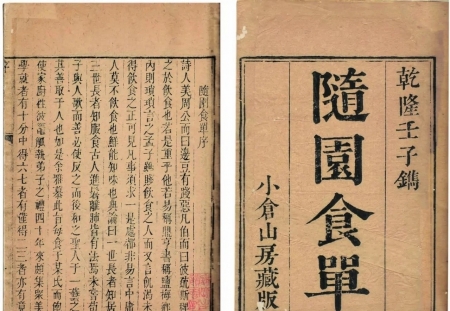 乾隆壬子鐫
隨園食單
小倉山房藏版
隨園食單序
詩人美周公而曰籩豆有踐惡凡伯而曰彼疏斯
之於飲食也若是重乎他若易稱鼎亨書稱鹽梅鄉
內則瑣瑣言之孟子雖賤飲食之人而又言飢渴未
得飲食之正可見凡事須求一是處都非易言中庸
人莫不飲食也鮮能知味也典論曰一世長者知居
三世長者知服食古人進鬐離肺皆有法焉未嘗苟
子與人歌而善必使反之而後和之聖人于一藝之
其善取于人也如是余雅慕此旨每食于某氏而飽
使家廚往彼竈觚執弟子之禮四十年來頗集眾美
學就者有十分中得六七者有僅得二三者亦有竟
序